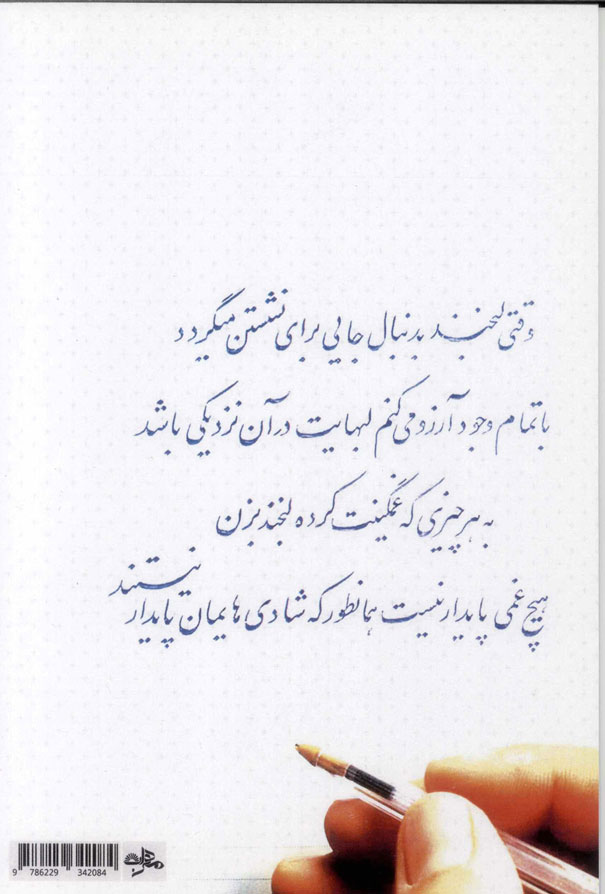 وقتی لبخند بدنبال جایی برای نشستن میگردد
با تمام وجود آرزو می کنم لبهایت در آن نزدیکی باشد
به هر چیزی که غمگینت کرده لبخند بزن
هیچ غمی پایدار نیست همانطور که شادی هایمان پایدار نیستند
9 786229 342084